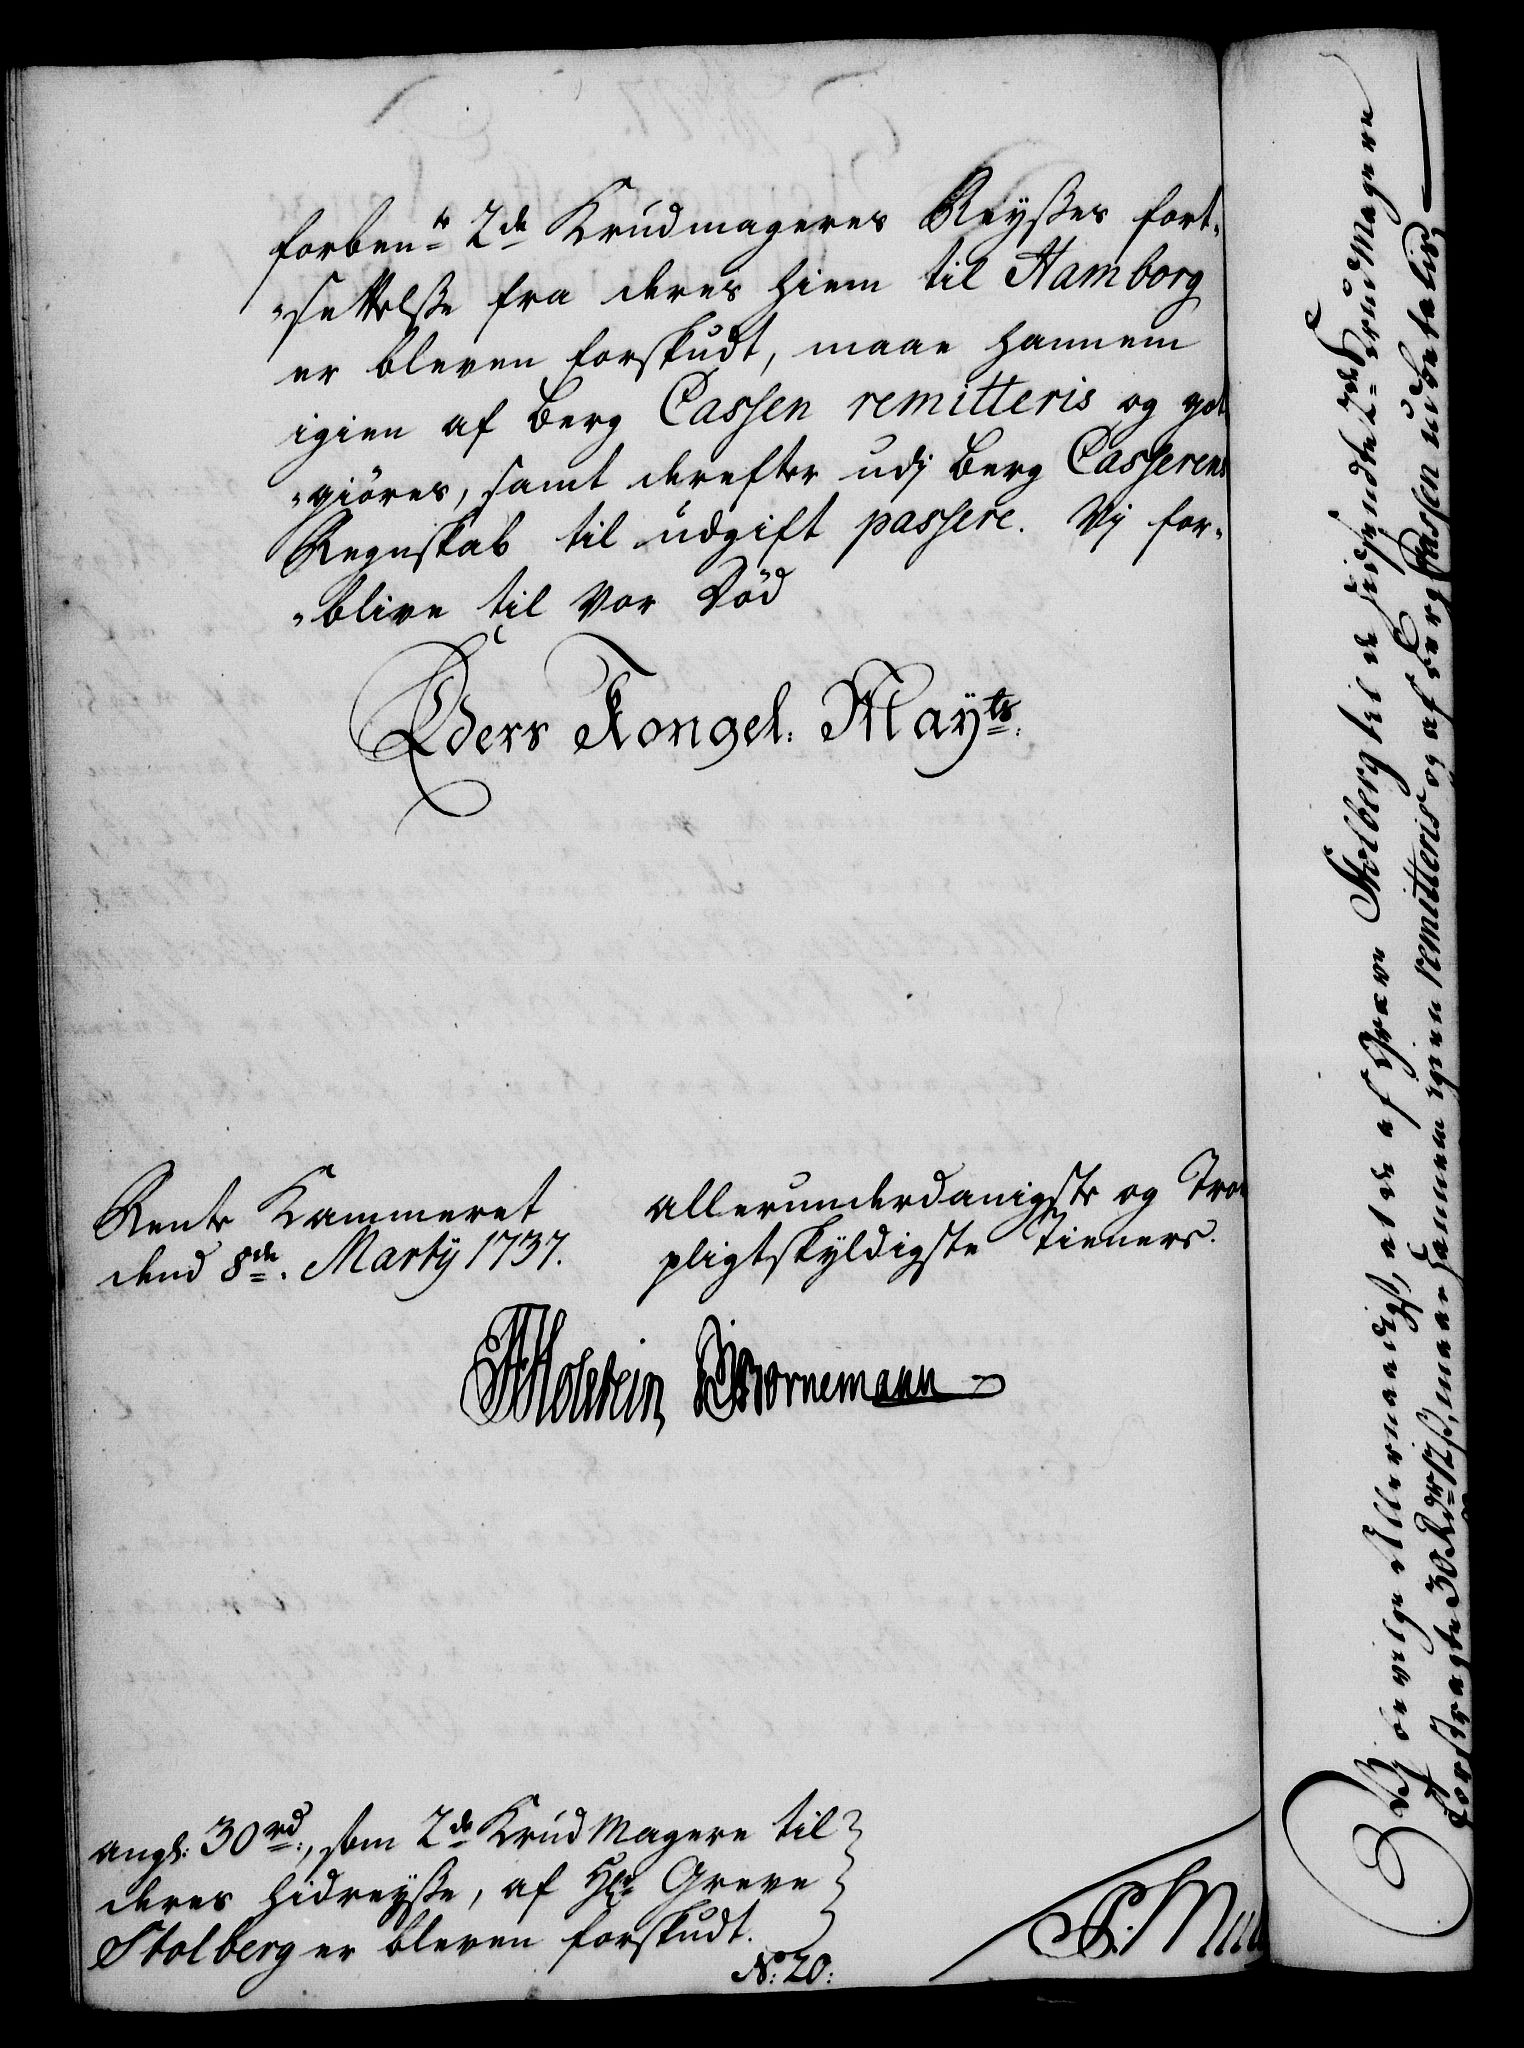 forben:te 2de Krudmageres Reyßes fort„
„settelße fra deres hiem til Hamborg
er bleven forskudt, maae hannem
igien af berg Cassen remitteris og got
„giöres, samt derefter udj berg Casserens
Regnskab til udgift passere. Vj for„
„blive til vor Död
Eders Kongel: Mayts:
Rente Kammeret
dend 8de. Martij 1737.
allerunderdanigste og Troe
pligtskyldigste Tienere.
Holstein, Bornemann
ang: 30 rd:, som 2de Krudmagere til
deres hidreyße, af Hr: Greve
Stolberg er bleven forskudt.
No: 20:
Vj bevilge Allernaadigst, at de af Greve Stolberg til de hidsendte 2de Krudmagere
forstragte 30 Rdr 12 ß, maae hannem igien remitteris og af berg Cassen udbetalis